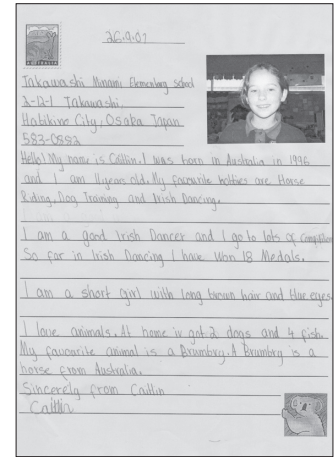 26.9.07
Takawashi Minami Elementary School
2-12-1 Takawashi
Habikino City, Osaka Japan
583-0882
Hello! My name is Caitlin. I was born in Australia in 1996
and I am 11 years old. My favourite hobbies are Horse
Riding, Dog Training and Irish Dancing.
I am a good Irish Dancer and I go to lots of
So far in Irish Dancing I have Won 18 Medals.
I am a short girl with long brown hair and blue eyes.
I love animals. At home iv got 2 dogs and 4 fish.
My favourite animal is a Brumbry. A Brumbry is a
horse from Australia.
Sincerely from Caitlin
Caitlin